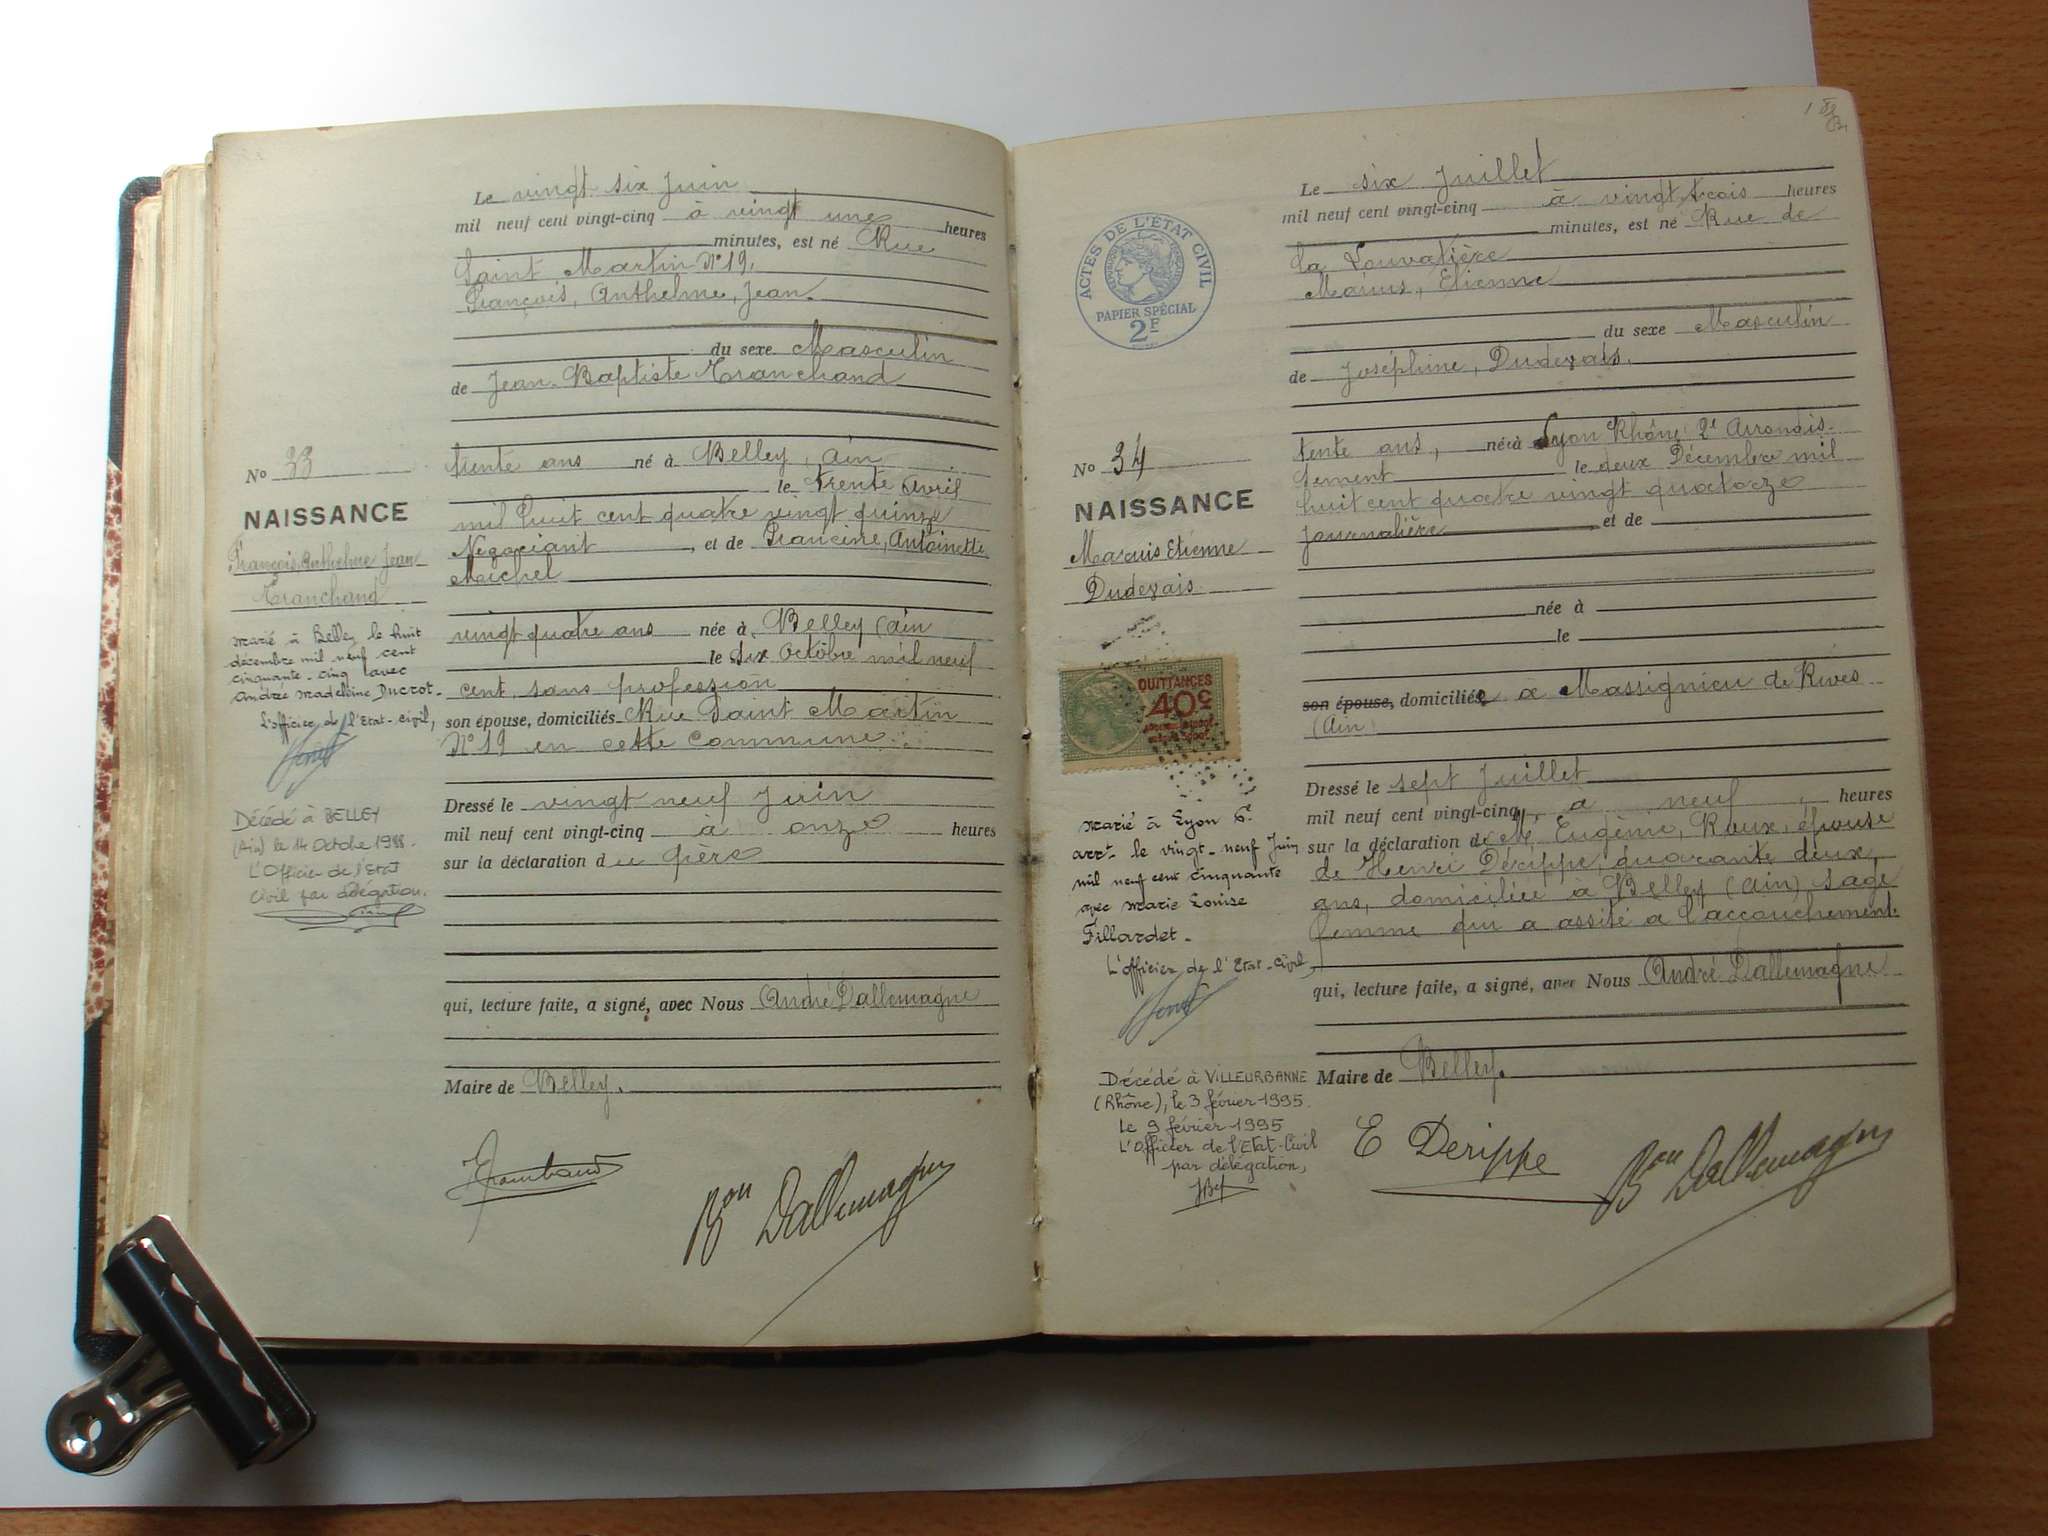 Le vingt six Juin
mil neuf cent vingt-cinq à vingt une heures
minutes, est né Rue
Saint Martin N° 19,
François, Anthelme, Jean.
du sexe Masculin
de Jean-Baptiste Tranchand
trente ans né à Belley, Ain
le trente Avril
mil huit cent quatre vingt quinze
Négociant, et de Francine, Antoinette
Michel
vingt quatre ans née à Belley (Ain
le six Octobre mil neuf
cent, sans profession
son épouse, domiciliés Rue Saint Martin
N° 19 en cette commune.
Dressé le vingt neuf Juin
mil neuf cent vingt-cinq à onze heures
sur la déclaration du père
qui, lecture faite, a signé, avec Nous André Dallemagne
Maire de Belley.
Bon Dallemagne
No 33
NAISSANCE
François, Anthelme Jean
Tranchand
Marié à Belley le huit
décembre mil neuf cent
cinquante-cinq avec
Andrée Madeleine Ducrot-
L'officier de l'Etat-Civil,
Décédé à BELLEY
(Ain) le 14 Octobre 1988.
L'Officier de l'Etat
Civil par délégation.
Le six Juillet
mil neuf cent vingt-cinq à vingt trois heures
minutes, est né Rue de
La Louvatière
Marius, Etienne
du sexe Masculin
de Joséphine, Dudevais.
tente ans, née à Lyon Rhône 2e Arrondis-
sement le deux Décembre mil
huit cent quatre vingt quatorze
journalière et de
née à
le
son épouse, domiciliée à Massignieu de Rives
(Ain)
Dressé le sept Juillet
mil neuf cent vingt-cinq, à neuf heures
sur la déclaration de Eugénie, Roux, épouse
de Henri Dérippe, quarante deux,
ans, domiciliée à Belley (Ain) sage
femme qui a assité a l'accouchement.
qui, lecture faite, a signé, avec Nous André Dallemagne
Maire de Belley.
E Derippe
Bon Dallemagne
ACTES DE L'ÉTAT CIVIL
PAPIER SPÉCIAL
2F
No 34
NAISSANCE
Marius Etienne
Dudevais
QUITTANCES
40c
Marié à Lyon 6e
arrt le vingt-neuf Juin
mil neuf cent cinquante
avec Marie Louise
Fillardet-
L'officier de l'Etat-Civil,
Décédé à VILLEURBANNE
(Rhône), le 3 février 1995.
Le 9 février 1995
L'Officier de l'Etat-Civil
par délégation,